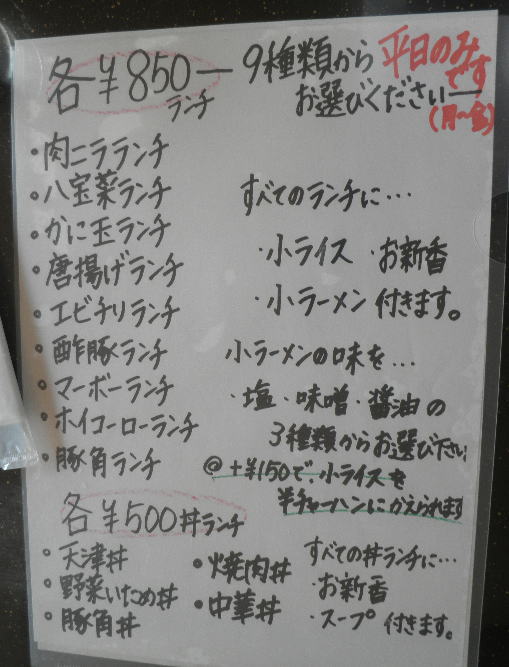 各¥850ー9種類から平日のみです
ランチ お選びくださいー(月〜金)
・肉ニラランチ
・八宝薬ランチ
・かに玉ランチ
・唐揚げランチ
・エビチリランチ
・酢豚ランチ
・マーボーランチ
・ホイコーローランチ
・豚角ランチ
すべてのランチに…
・小ライス ・お新香
・小ラーメン 付きます。
小ラーメンの味を…
・塩・味噌・醤油の
3種類からお選び下さい
@+¥150で、小ライスを
半チャーハンにかえられます
各¥500丼ランチ
・天津丼
・野菜いため丼
・豚角丼
・焼肉丼
・中華丼
すべての丼ランチに…
・お新香
・スープ 付きます。